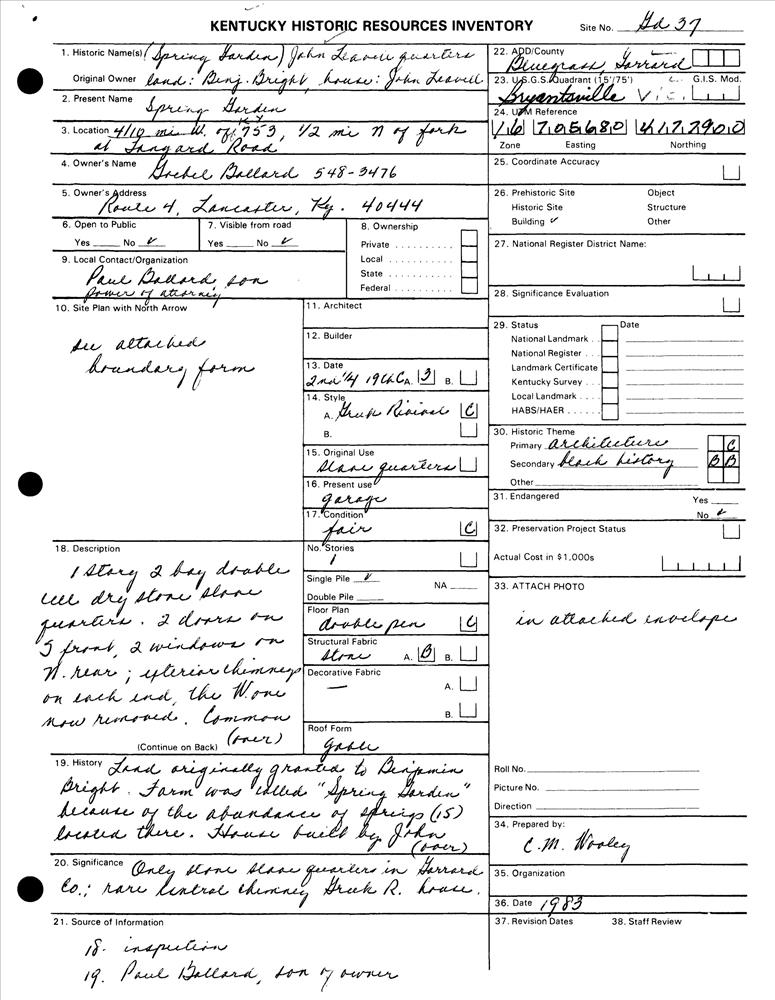 KENTUCKY HISTORIC RESOURCES INVENTORY
Site No. Gd 37
1. Historic Name(s) (Spring Garden) John Leavell quarters
Original Owner land: Benj. Bright, house: John Leavell
2. Present Name Spring Garden
3. Location 4/10 mi W. off KY 753, 1/2 mi N of fork
at Tanyard Road
4. Owner's Name Goebel Ballard 548-3476
5. Owner's Address
Route 4, Lancaster, Ky. 40444
6. Open to Public
Yes No ✓
7. Visible from road
Yes No ✓
8. Ownership
Private
Local
State
Federal
9. Local Contact/Organization
Paul Ballard, son
power of attorney
10. Site Plan with North Arrow
see attached
boundary form
11. Architect
12. Builder
13. Date
2nd 1/4 19th C A. 3 B.
14. Style
A. Greek Revival C
B.
15. Original Use
slave quarters
16. Present use
garage
17. Condition
fair C
No. Stories
1
Single Pile ✓ NA
Double Pile
Floor Plan
double pen
Structural Fabric
stone A. B B.
Decorative Fabric
— A.
B.
Roof Form
gable
18. Description
1 story 2 bay double
cell dry stone slave
quarters. 2 doors on
S front, 2 windows on
N. rear; exterior chimneys
on each end, the W. one
now removed. Common
(over)
(Continue on Back)
19. History Land originally granted to Benjamin
Bright. Farm was called "Spring Garden"
because of the abundance of springs (15)
located there. House built by John
(over)
20. Significance Only stone slave quarters in Garrard
Co.; rare central chimney Greek R. house.
21. Source of Information
18. inspection
19. Paul Ballard, son of owner
22. ADD/County
Bluegrass Garrard
23. U.S.G.S. Quadrant (15'/75') G.I.S. Mod.
Bryantsville
24. UTM Reference
16 705680 4172900
Zone Easting Northing
25. Coordinate Accuracy
26. Prehistoric Site Object
Historic Site Structure
Building ✓ Other
27. National Register District Name:
28. Significance Evaluation
29. Status Date
National Landmark
National Register
Landmark Certificate
Kentucky Survey
Local Landmark
HABS/HAER
30. Historic Theme
Primary architecture C
Secondary black history B B
Other
31. Endangered Yes
No ✓
32. Preservation Project Status
Actual Cost in $1,000s
33. ATTACH PHOTO
in attached envelope
Roll No.
Picture No.
Direction
34. Prepared by:
C.M. Wooley
35. Organization
36. Date 1983
37. Revision Dates 38. Staff Review